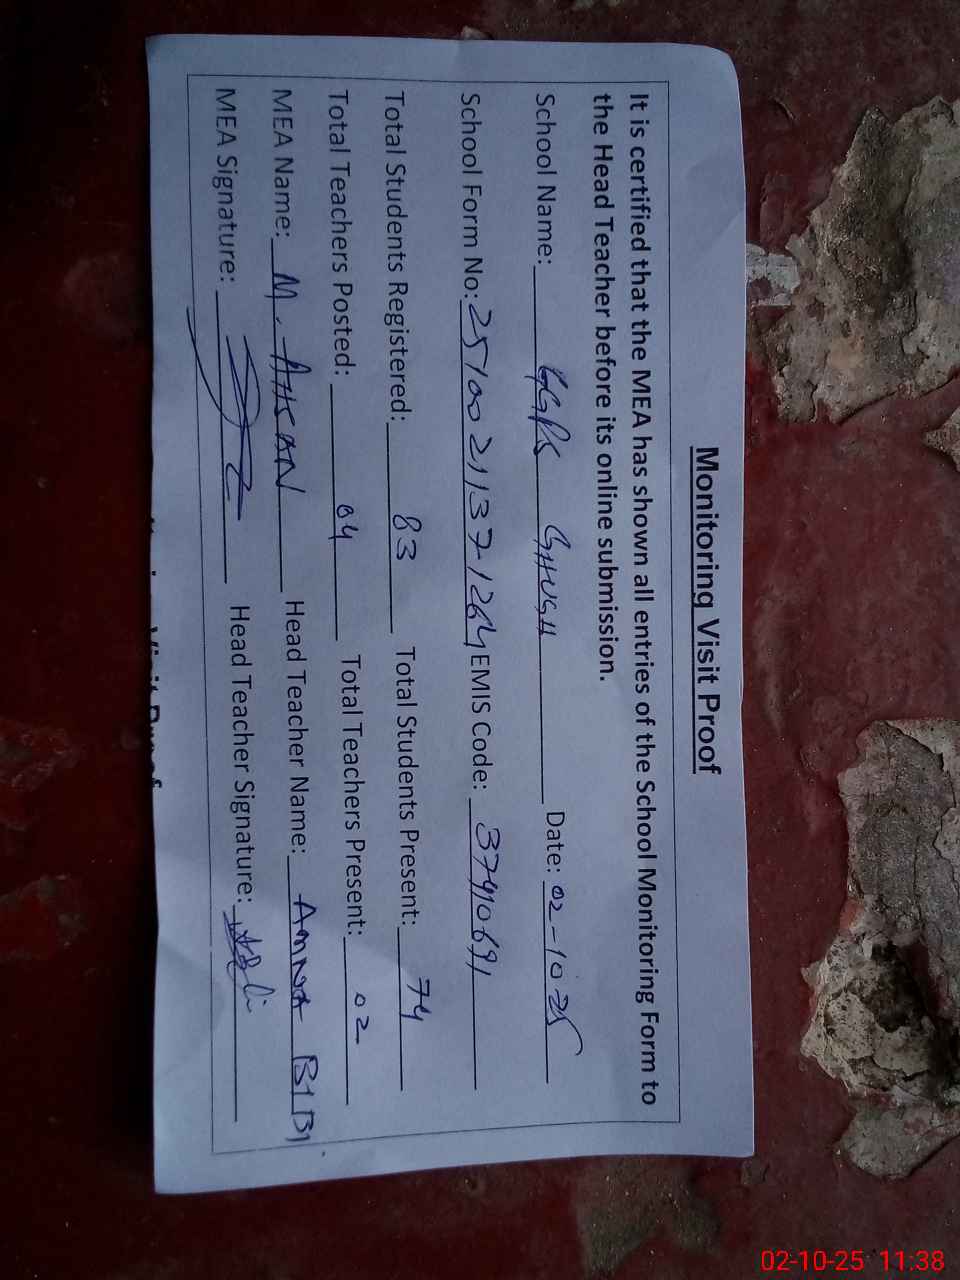 Monitoring Visit Proof
It is certified that the MEA has shown all entries of the School Monitoring Form to
the Head Teacher before its online submission.
School Name: GGPS GHUSH Date: 02-10-25
School Form No: 25100211371264 EMIS Code: 37410691
Total Students Registered: 83 Total Students Present: 74
Total Teachers Posted: 04 Total Teachers Present: 02
MEA Name: M. AHSAN Head Teacher Name: AMNA BIBI
MEA Signature: Head Teacher Signature:
Visit Proof
02-10-25 11:38